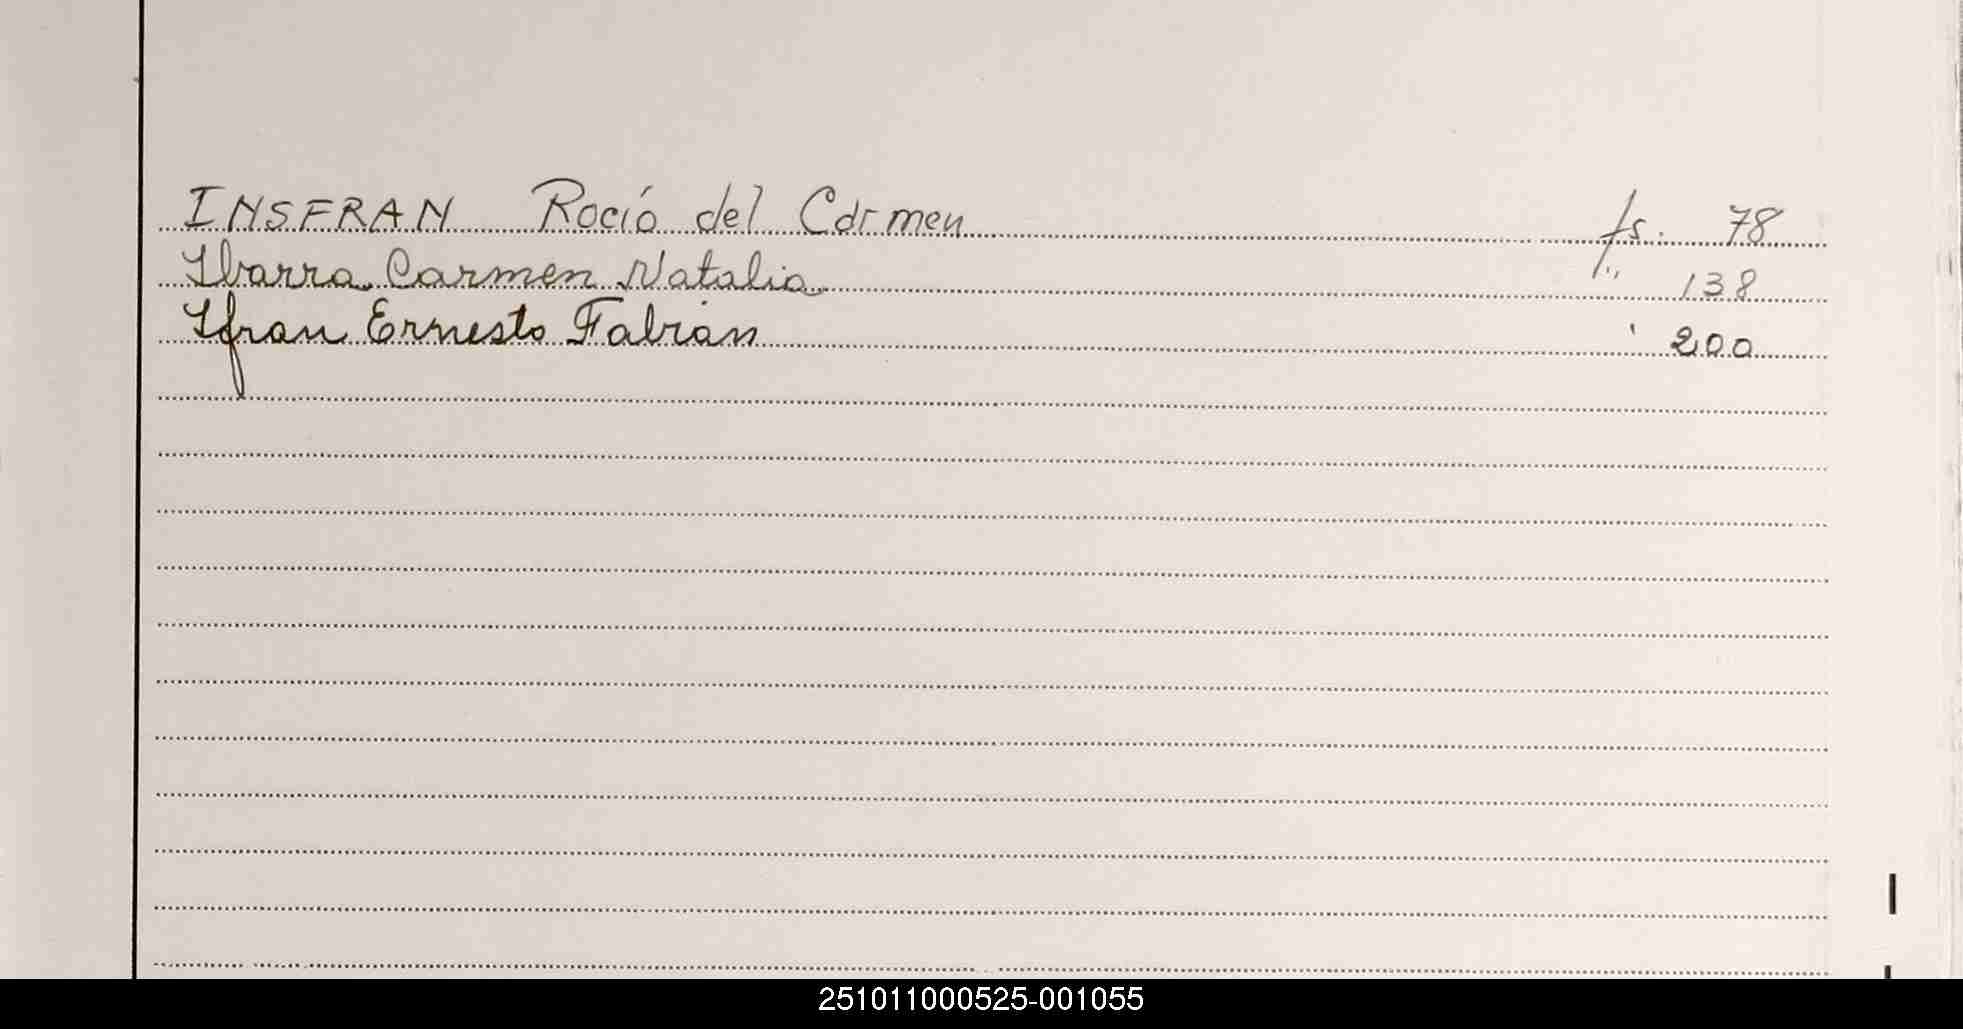 INSFRAN Rocío del Carmen fs. 78
Ibarra Carmen Natalia " 138
Ifran Ernesto Fabian ' 200
251011000525-001055